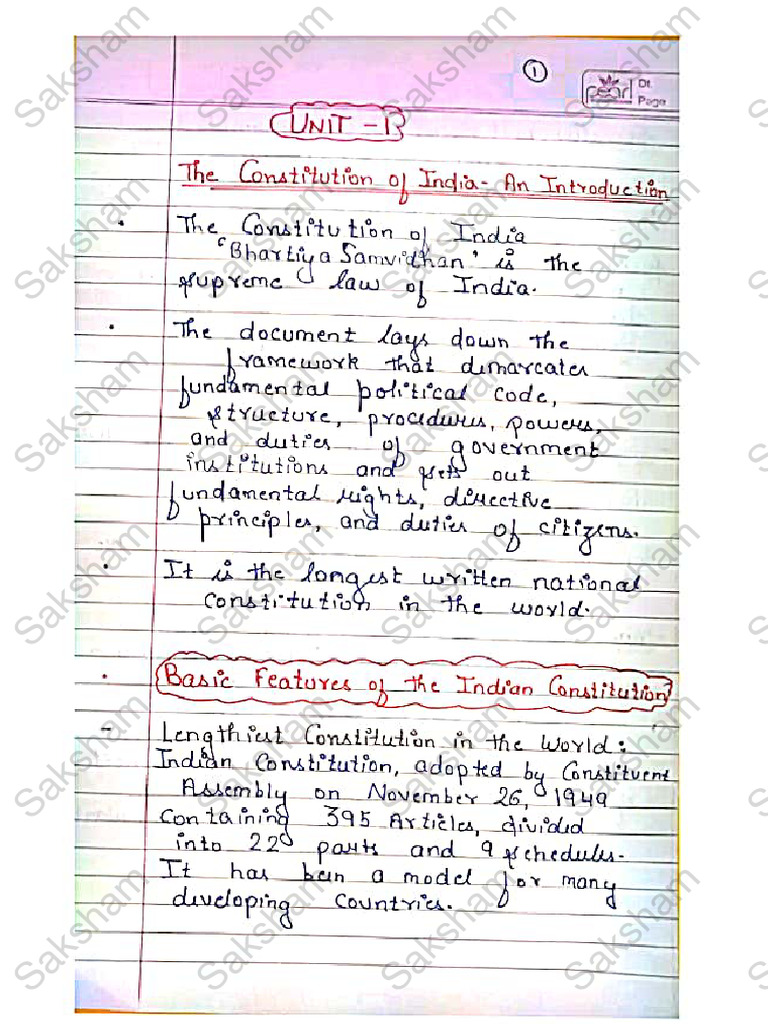 1
pearl
Dt.
Page
UNIT - 1
The Constitution of India - An Introduction
The Constitution of India
'Bhartiya Samvidhan' is the
supreme law of India.
The document lays down the
framework that demarcates
fundamental political code,
structure, procedures, powers,
and duties of government
institutions and sets out
fundamental rights, directive
principles, and duties of citizens.
It is the longest written national
constitution in the world.
Basic Features of the Indian Constitution
- Lengthiest Constitution in the World:
Indian Constitution, adopted by Constituent
Assembly on November 26, 1949
containing 395 Articles, divided
into 22 parts and 9 schedules.
It has been a model for many
developing countries.
Saksham